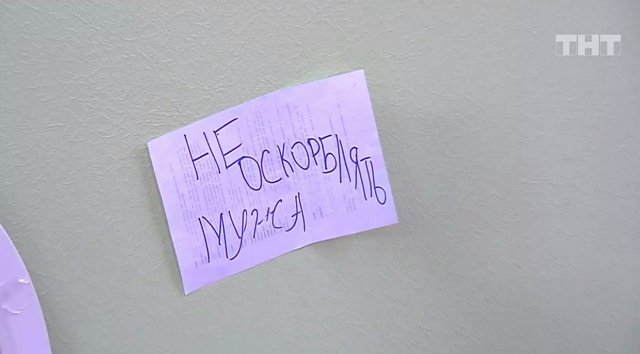 ТНТ
НЕ
ОСКОРБЛЯТЬ
МУЖА